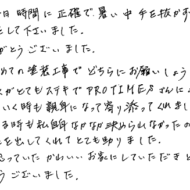 日 時間に正確で暑い中手を抜かず
として下さいました。
がとうございました。
めての塗装工事でどちらにお願いしよう
スがとてもステキでPROTIMESさんに
いく時も親身になって寄り添ってくれまし
る時も私自身なかなか決められなかったの
を出してくれてとても助りました。
思っていたかわいいお家にしていただきと
うございました。